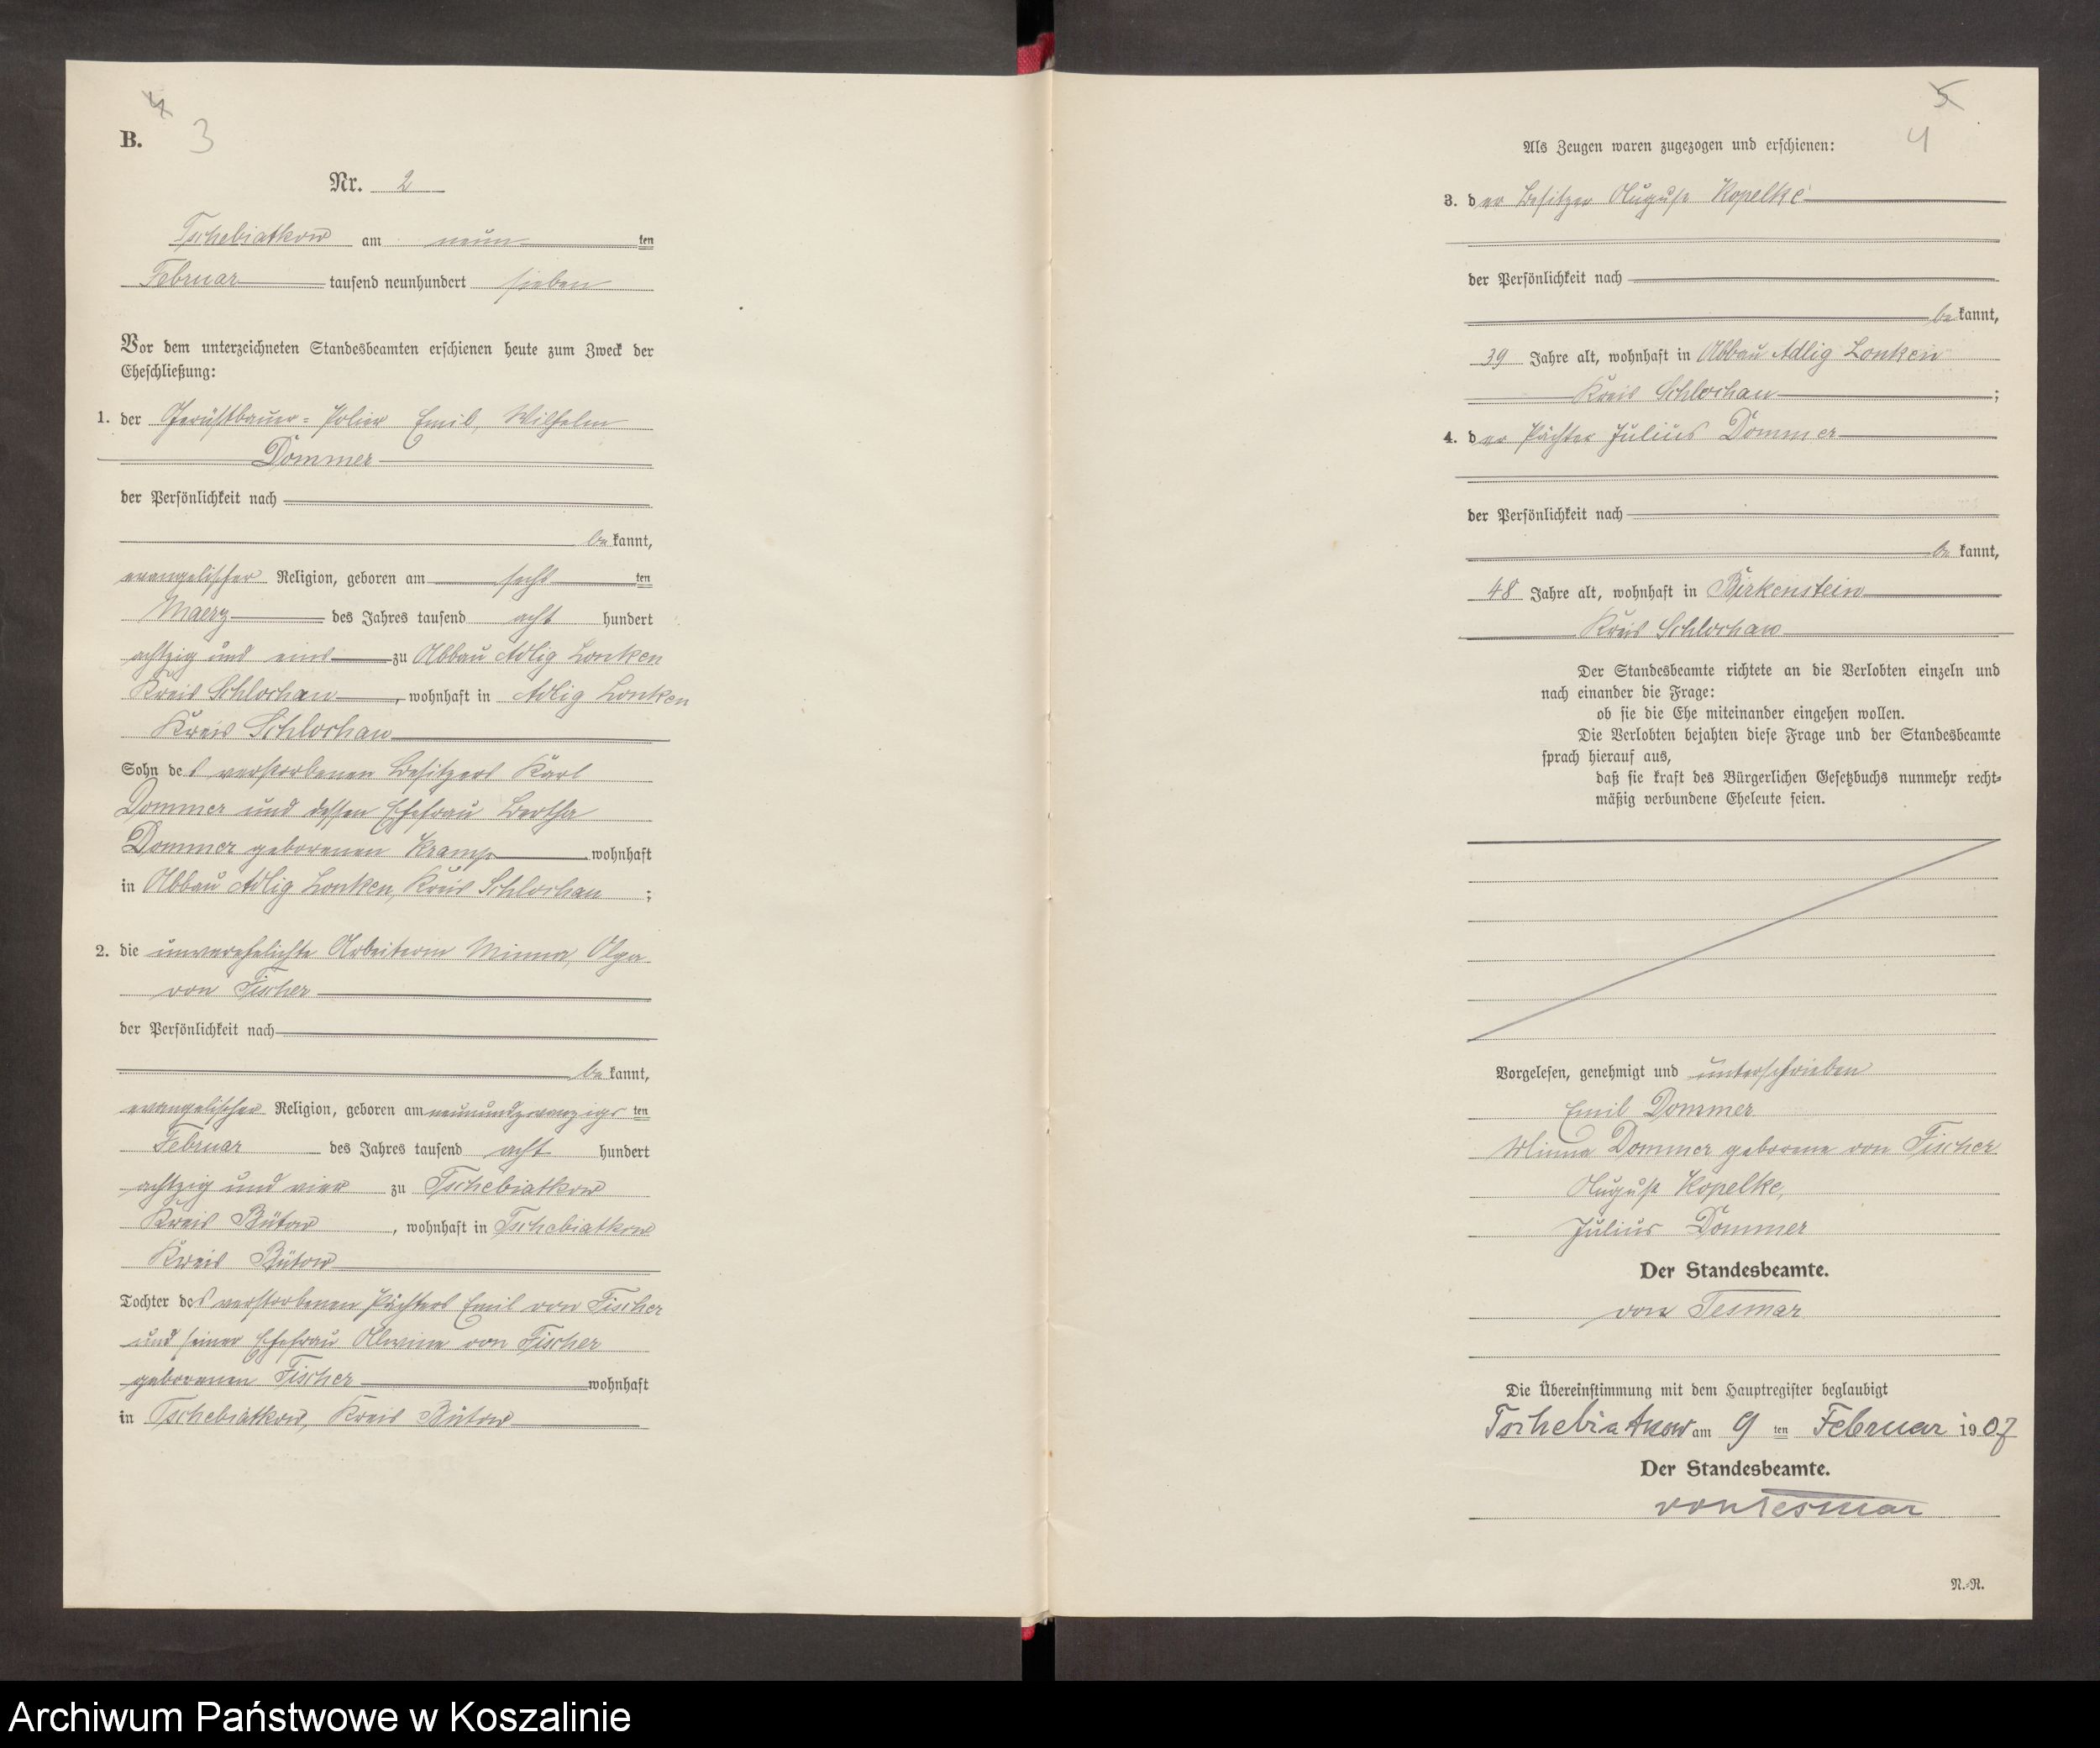 4
B. 3
Nr. 2
Tschebiatkow am neun ten
Februar tausend neunhundert sieben
Vor dem unterzeichneten Standesbeamten erschienen heute zum Zweck der
Eheschließung:
1. der Gerüstbauer-Polier Emil, Wilhelm
Dommer
der Persönlichkeit nach
be kannt,
evangelischer Religion, geboren am sechs ten
Maerz des Jahres tausend acht hundert
achtzig und eins zu Abbau Adlig Lonken
Kreis Schlochau, wohnhaft in Adlig Lonken
Kreis Schlochau
Sohn des verstorbenen Besitzers Karl
Dommer und dessen Ehefrau Bertha
Dommer geborenen Kramp wohnhaft
in Abbau Adlig Lonken, Kreis Schlochau ;
2. die unverehelichte Arbeiterin Minna, Olga
von Fischer
der Persönlichkeit nach
be kannt,
evangelischer Religion, geboren am neunundzwanzigs ten
Februar des Jahres tausend acht hundert
achtzig und vier zu Tschebiatkow
Kreis Bütow, wohnhaft in Tschebiatkow
Kreis Bütow
Tochter des verstorbenen Pächters Emil von Fischer
und seiner Ehefrau Alwine von Fischer
geborenen Fischer wohnhaft
in Tschebiatkow, Kreis Bütow
5
4
Als Zeugen waren zugezogen und erschienen:
3. der Besitzer August Kopelke
der Persönlichkeit nach
be kannt,
39 Jahre alt, wohnhaft in Abbau Adlig Lonken
Kreis Schlochau ;
4. der Pächter Julius Dommer
der Persönlichkeit nach
be kannt,
48 Jahre alt, wohnhaft in Birkenstein
Kreis Schlochau
Der Standesbeamte richtete an die Verlobten einzeln und
nach einander die Frage:
ob sie die Ehe miteinander eingehen wollen.
Die Verlobten bejahten diese Frage und der Standesbeamte
sprach hierauf aus,
daß sie kraft des Bürgerlichen Gesetzbuchs nunmehr recht-
mäßig verbundene Eheleute seien.
Vorgelesen, genehmigt und unterschrieben
Emil Dommer
Minna Dommer geborene von Fischer
August Kopelke,
Julius Dommer
Der Standesbeamte.
von Tesmar
Die Übereinstimmung mit dem Hauptregister beglaubigt
Tschebiatkow am 9 ten Februar 1907
Der Standesbeamte.
von Tesmar
N.-R.
Archiwum Państwowe w Koszalinie